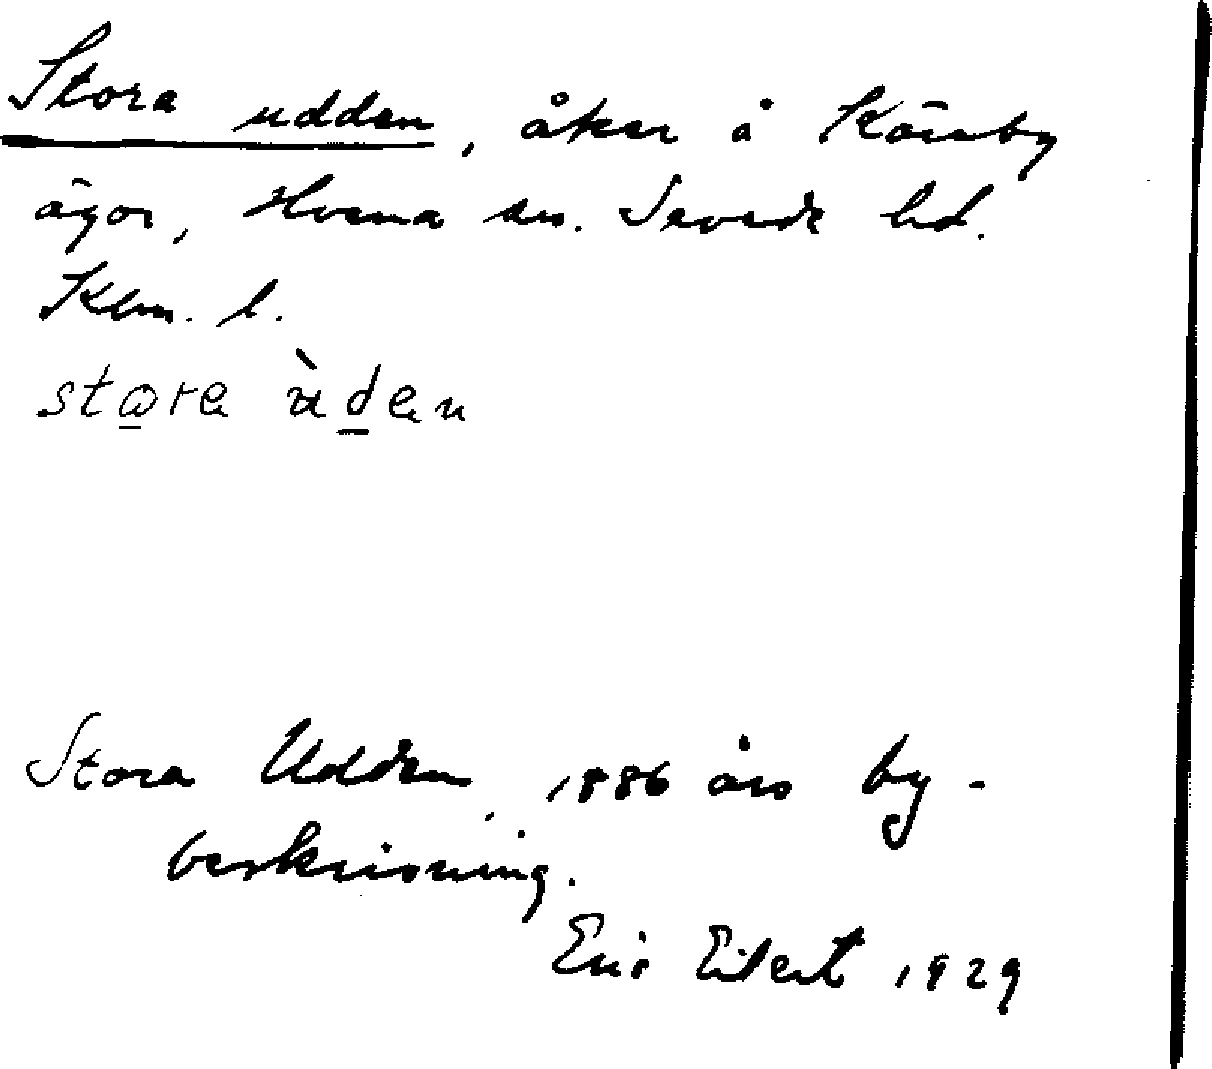 Stora udden, åker å Kärsby
ägor, Hvena sn. Sevede hd.
Klm. l.
Stora Udden, 1886 års by-
beskrivning.
Eric Eilert 1929